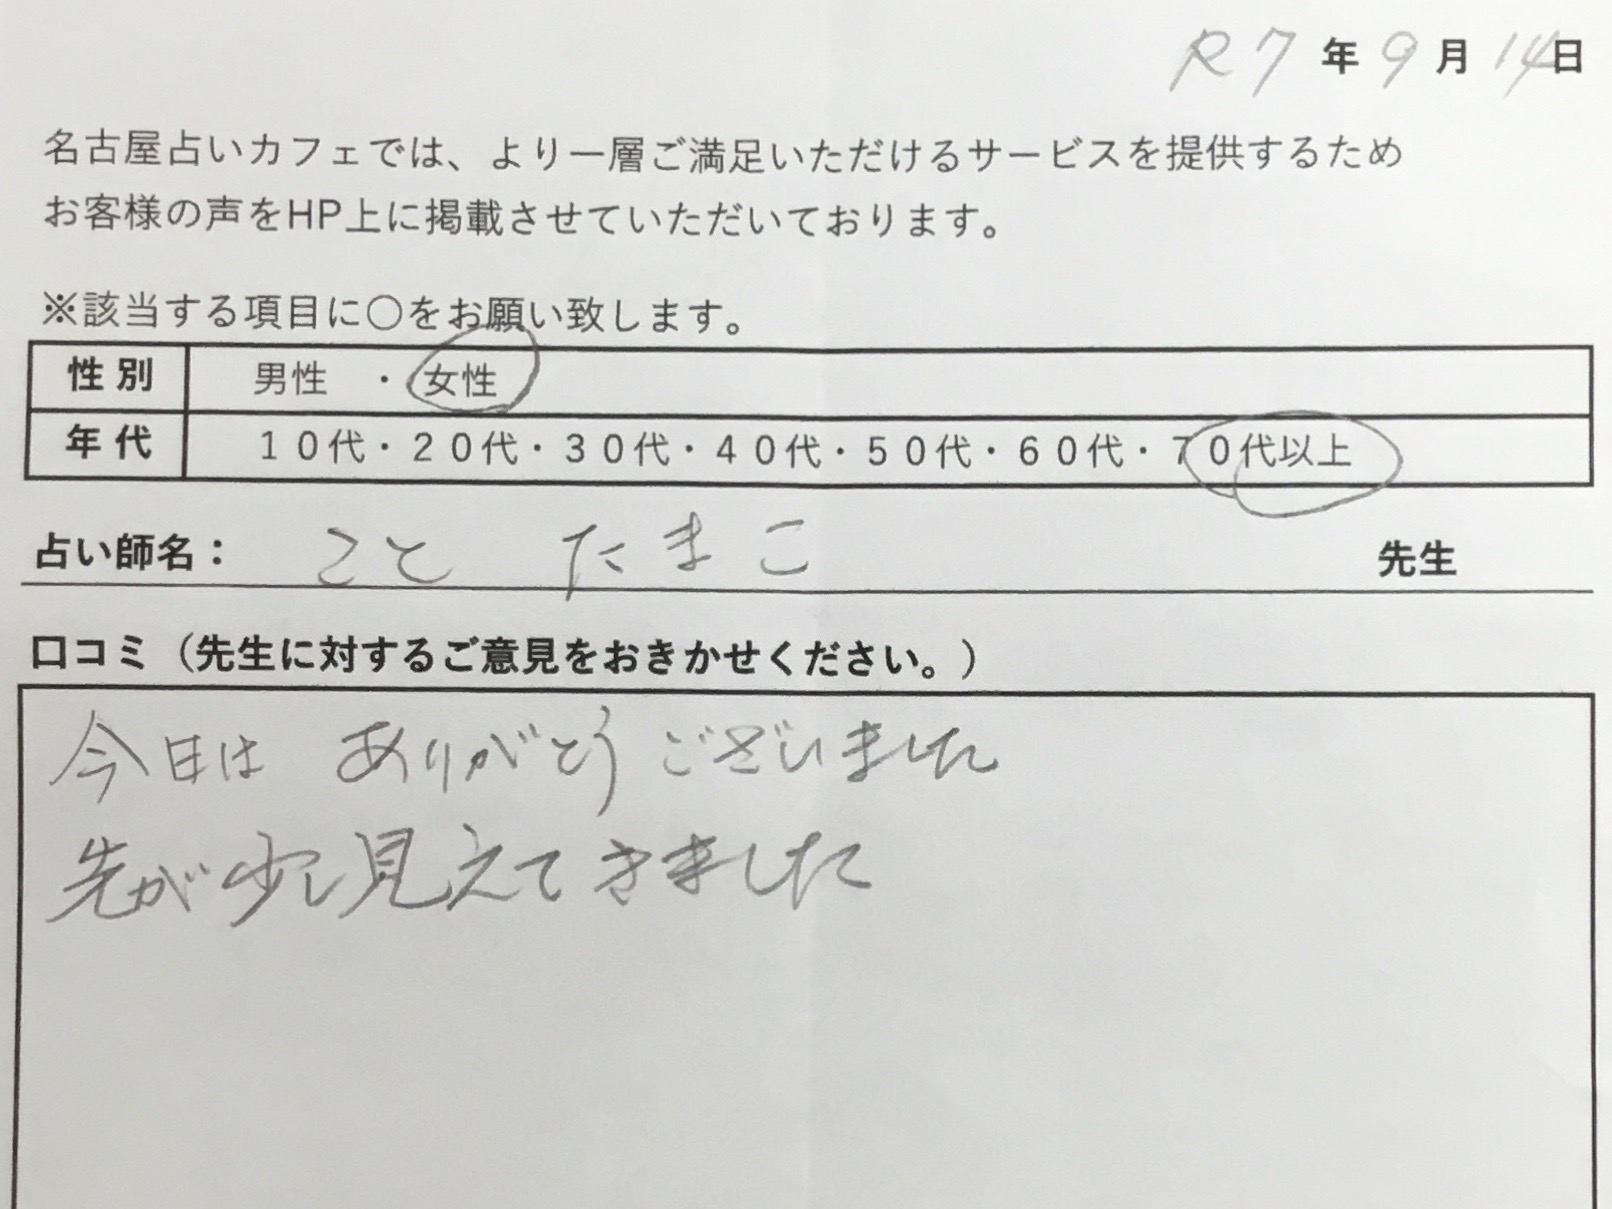 R7年9月14日
名古屋占いカフェでは、より一層ご満足いただけるサービスを提供するため
お客様の声をHP上に掲載させていただいております。
※該当する項目に○をお願い致します。
性別 男性 ・ 女性
年代 10代・20代・30代・40代・50代・60代・70代以上
占い師名： こと たまこ 先生
口コミ（先生に対するご意見をおきかせください。）
今日は ありがとう ございました
先が少し見えてきました